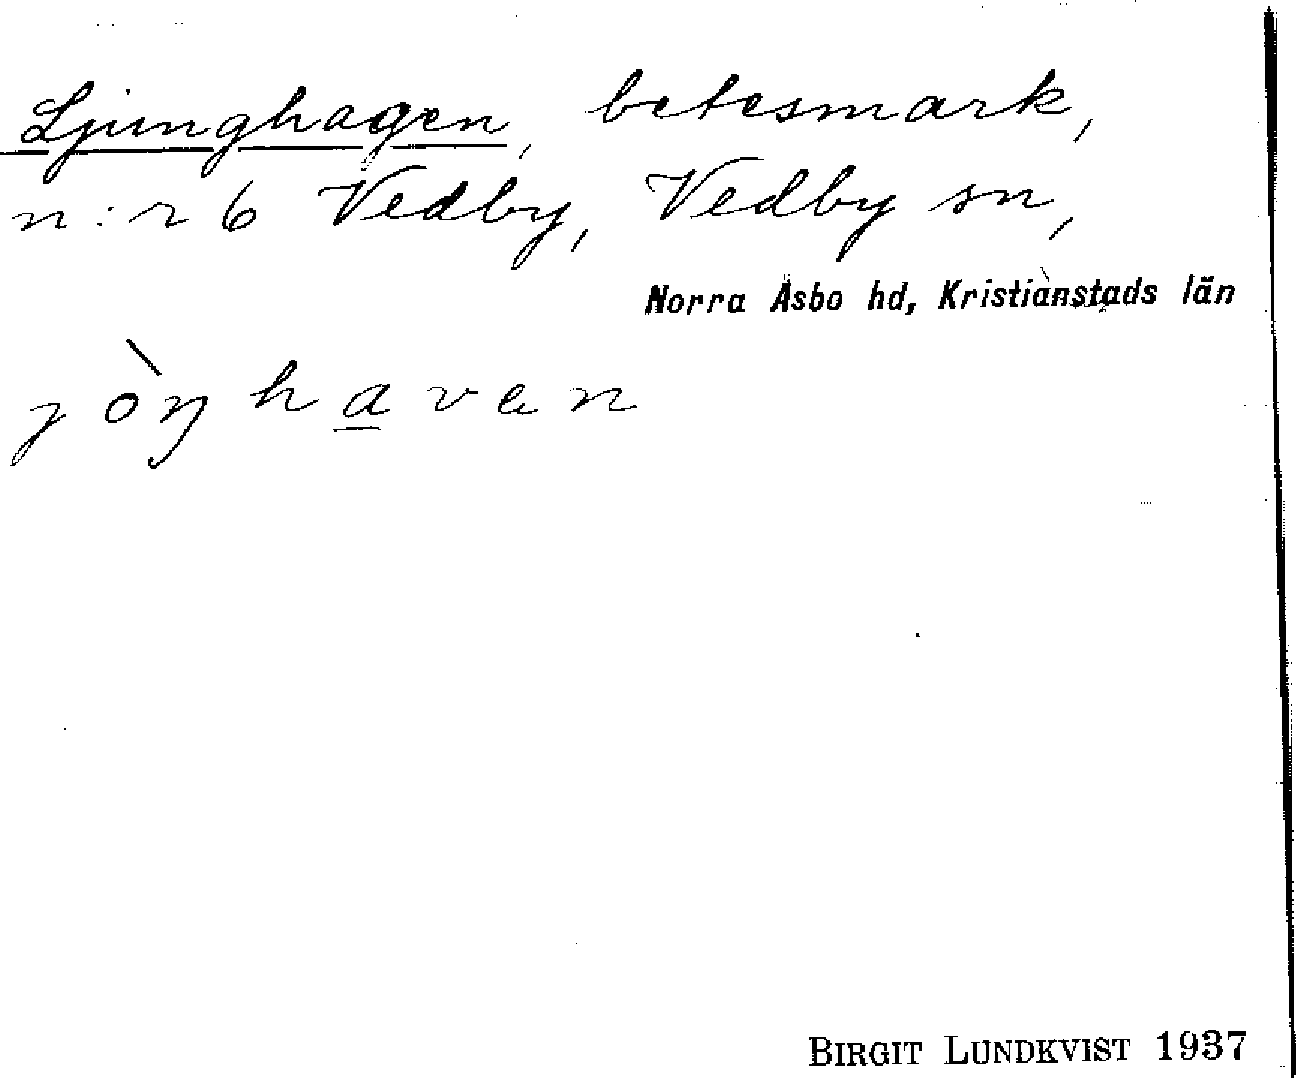 Ljunghagen, betesmark,
n:r 6 Vedby, Vedby sn,
Norra Åsbo hd, Kristianstads län
jòŋhaven
BIRGIT LUNDKVIST 1937